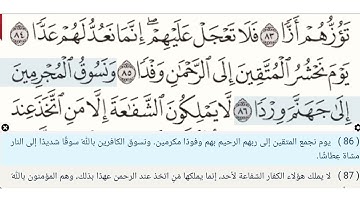 تَؤُزُّهُمْ أَزًّا ٨٣ فَلَا تَعْجَلْ عَلَيْهِمْ ۖ إِنَّمَا نَعُدُّ لَهُمْ عَدًّا ٨٤
يَوْمَ نَحْشُرُ الْمُتَّقِينَ إِلَى الرَّحْمَٰنِ وَفْدًا ٨٥ وَنَسُوقُ الْمُجْرِمِينَ
إِلَىٰ جَهَنَّمَ وِرْدًا ٨٦ لَّا يَمْلِكُونَ الشَّفَاعَةَ إِلَّا مَنِ اتَّخَذَ عِندَ
( 86 ) يوم نجمع المتقين إلى ربهم الرحيم بهم وفودًا مكرمين. ونسوق الكافرين بالله سوقًا شديدًا إلى النار
مشاة عِطاشًا.
( 87 ) لا يملك هؤلاء الكفار الشفاعة لأحد، إنما يملكها مَنِ اتخذ عند الرحمن عهدًا بذلك، وهم المؤمنون بالله